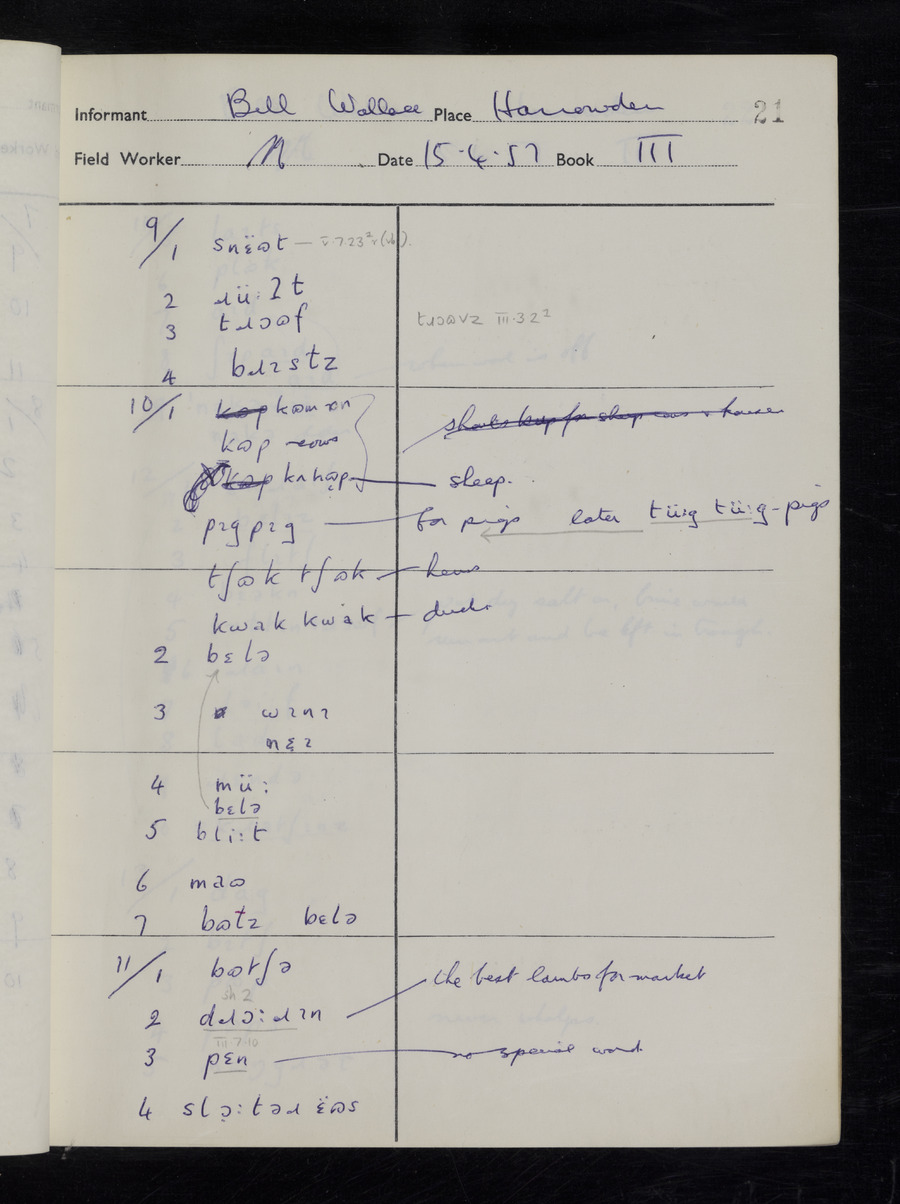 Informant Bill Wallace Place Harrowden 21
Field Worker N Date 15·4·57 Book III
9/1 snɛ̈ɷt — v.7.23
2 ɹü:ʔt
3 tɹɔɷf tɹɔɷvz III.3.2²
4 bɹɪstz
10/1 kɷp kɷm ɷn
kɷp cows
kɷp kʌhɷp — sheep.
pɪg pɪg — for pigs later tü:g tü:g - pigs
tʃɷk tʃɷk — hens
kwak kwak — ducks
2 bɛlə
3 wɪnɪ
nɛɪ
4 mü:
bɛlə
5 bli:t
6 maɷ
7 bɷtz bɛlə
11/1 bɷtʃə
sh 2
2 dɹɔ:ɹɪn the best lambs for market
III.7.10
3 pɛn — no special word
4 slɔ̣:təɹ ɛ̈ɷs